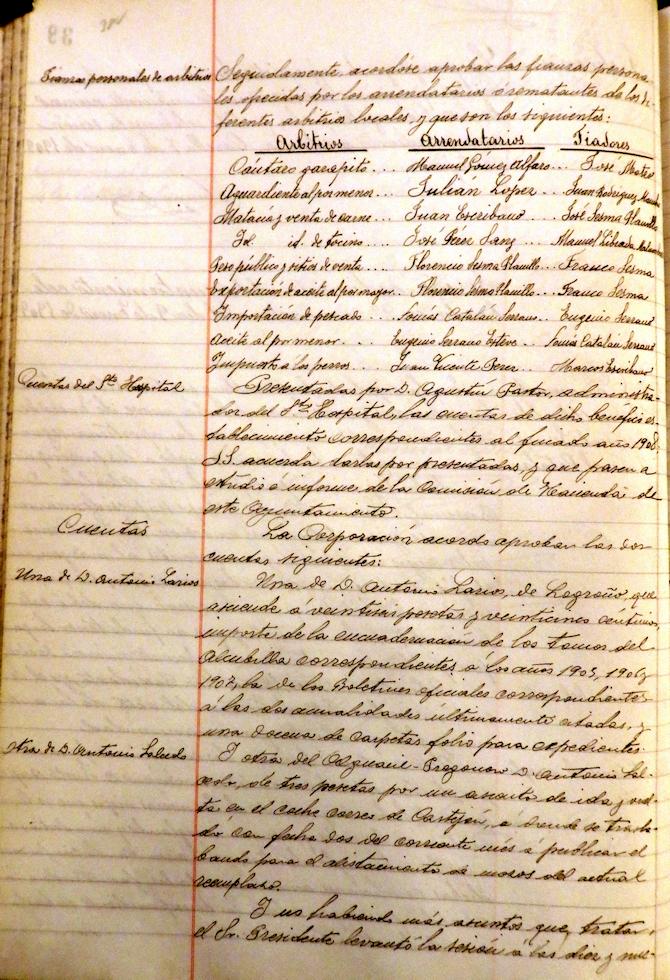 Fianzas personales de arbitrios
Seguidamente, acordóse aprobar las fianzas persona-
les ofrecidas por los arrendatarios ó rematantes de los di-
ferentes arbitrios locales, y que son los siguientes:
Arbitrios Arrendatarios Fiadores
Cántaro garapito... Manuel Gomez Alfaro... José Mateo
Aguardiente al por menor... Julián Lopez... Juan Rodriguez
Matacía y venta de carne... Juan Escribano... José Sesma Planillo
Id. id. de tocino... José Pérez Sanz... Manuel Librada
Peso público y sitios de venta... Florencio Sesma Planillo... Franco Sesma
Exportación de aceite al por mayor... Florencio Sesma Planillo... Franco Sesma
Importación de pescado... Tomás Catalan Serrano... Eugenio Serrano
Aceite al por menor... Eugenio Serrano Esteve... Tomás Catalan Serrano
Impuesto a los perros... Juan Vicente Perez... Marcos Escribano
Cuentas del Sto. Hospital
Presentadas por D. Agustín Pastor, administra-
dor del Sto. Hospital, las cuentas de dicho benéfico es-
tablecimiento correspondientes al finado año 1908;
S.S. acuerda darlas por presentadas, y que pasen a
estudio é informe de la Comisión de Hacienda de
este Ayuntamiento.
Cuentas
La Corporación acordó aprobar las dos
cuentas siguientes:
Una de D. Antonio Larios
Una de D. Antonio Larios, de Logroño, que
asciende á veintiseis pesetas y veinticinco céntimos,
importe de la encuadernación de los tomos del
Alcubilla correspondientes á los años 1905, 1906 y
1907, la de los Boletines oficiales correspondientes
á las dos anualidades últimamente citadas, y
una docena de carpetas folio para expedientes.
Otra de D. Antonio Salcedo
Y otra del Alguacil-Pregonero D. Antonio Sal-
cedo, de tres pesetas por un asiento de ida y vuel-
ta en el coche correo de Castejon, á donde se trasla-
dó con fecha dos del corriente mes á publicar el
bando para el alistamiento de mozos del actual
reemplazo.
Y no habiendo más asuntos que tratar,
el Sr. Presidente levantó la sesión a las diez y me-